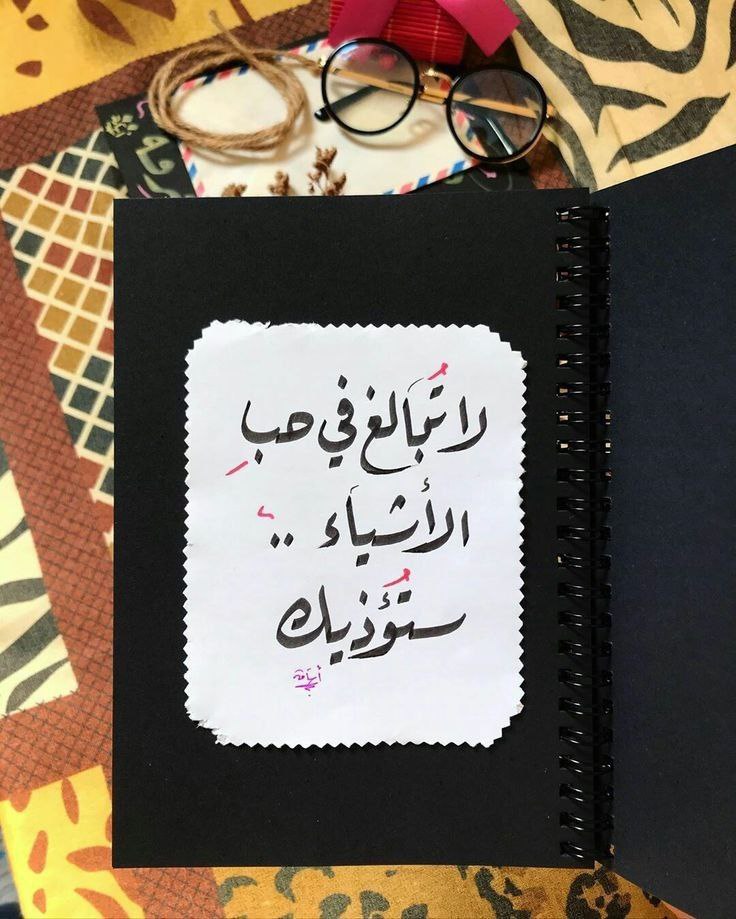 لا تُبَالغ في حبِ
الأشيَاء ..
ستُؤذيك